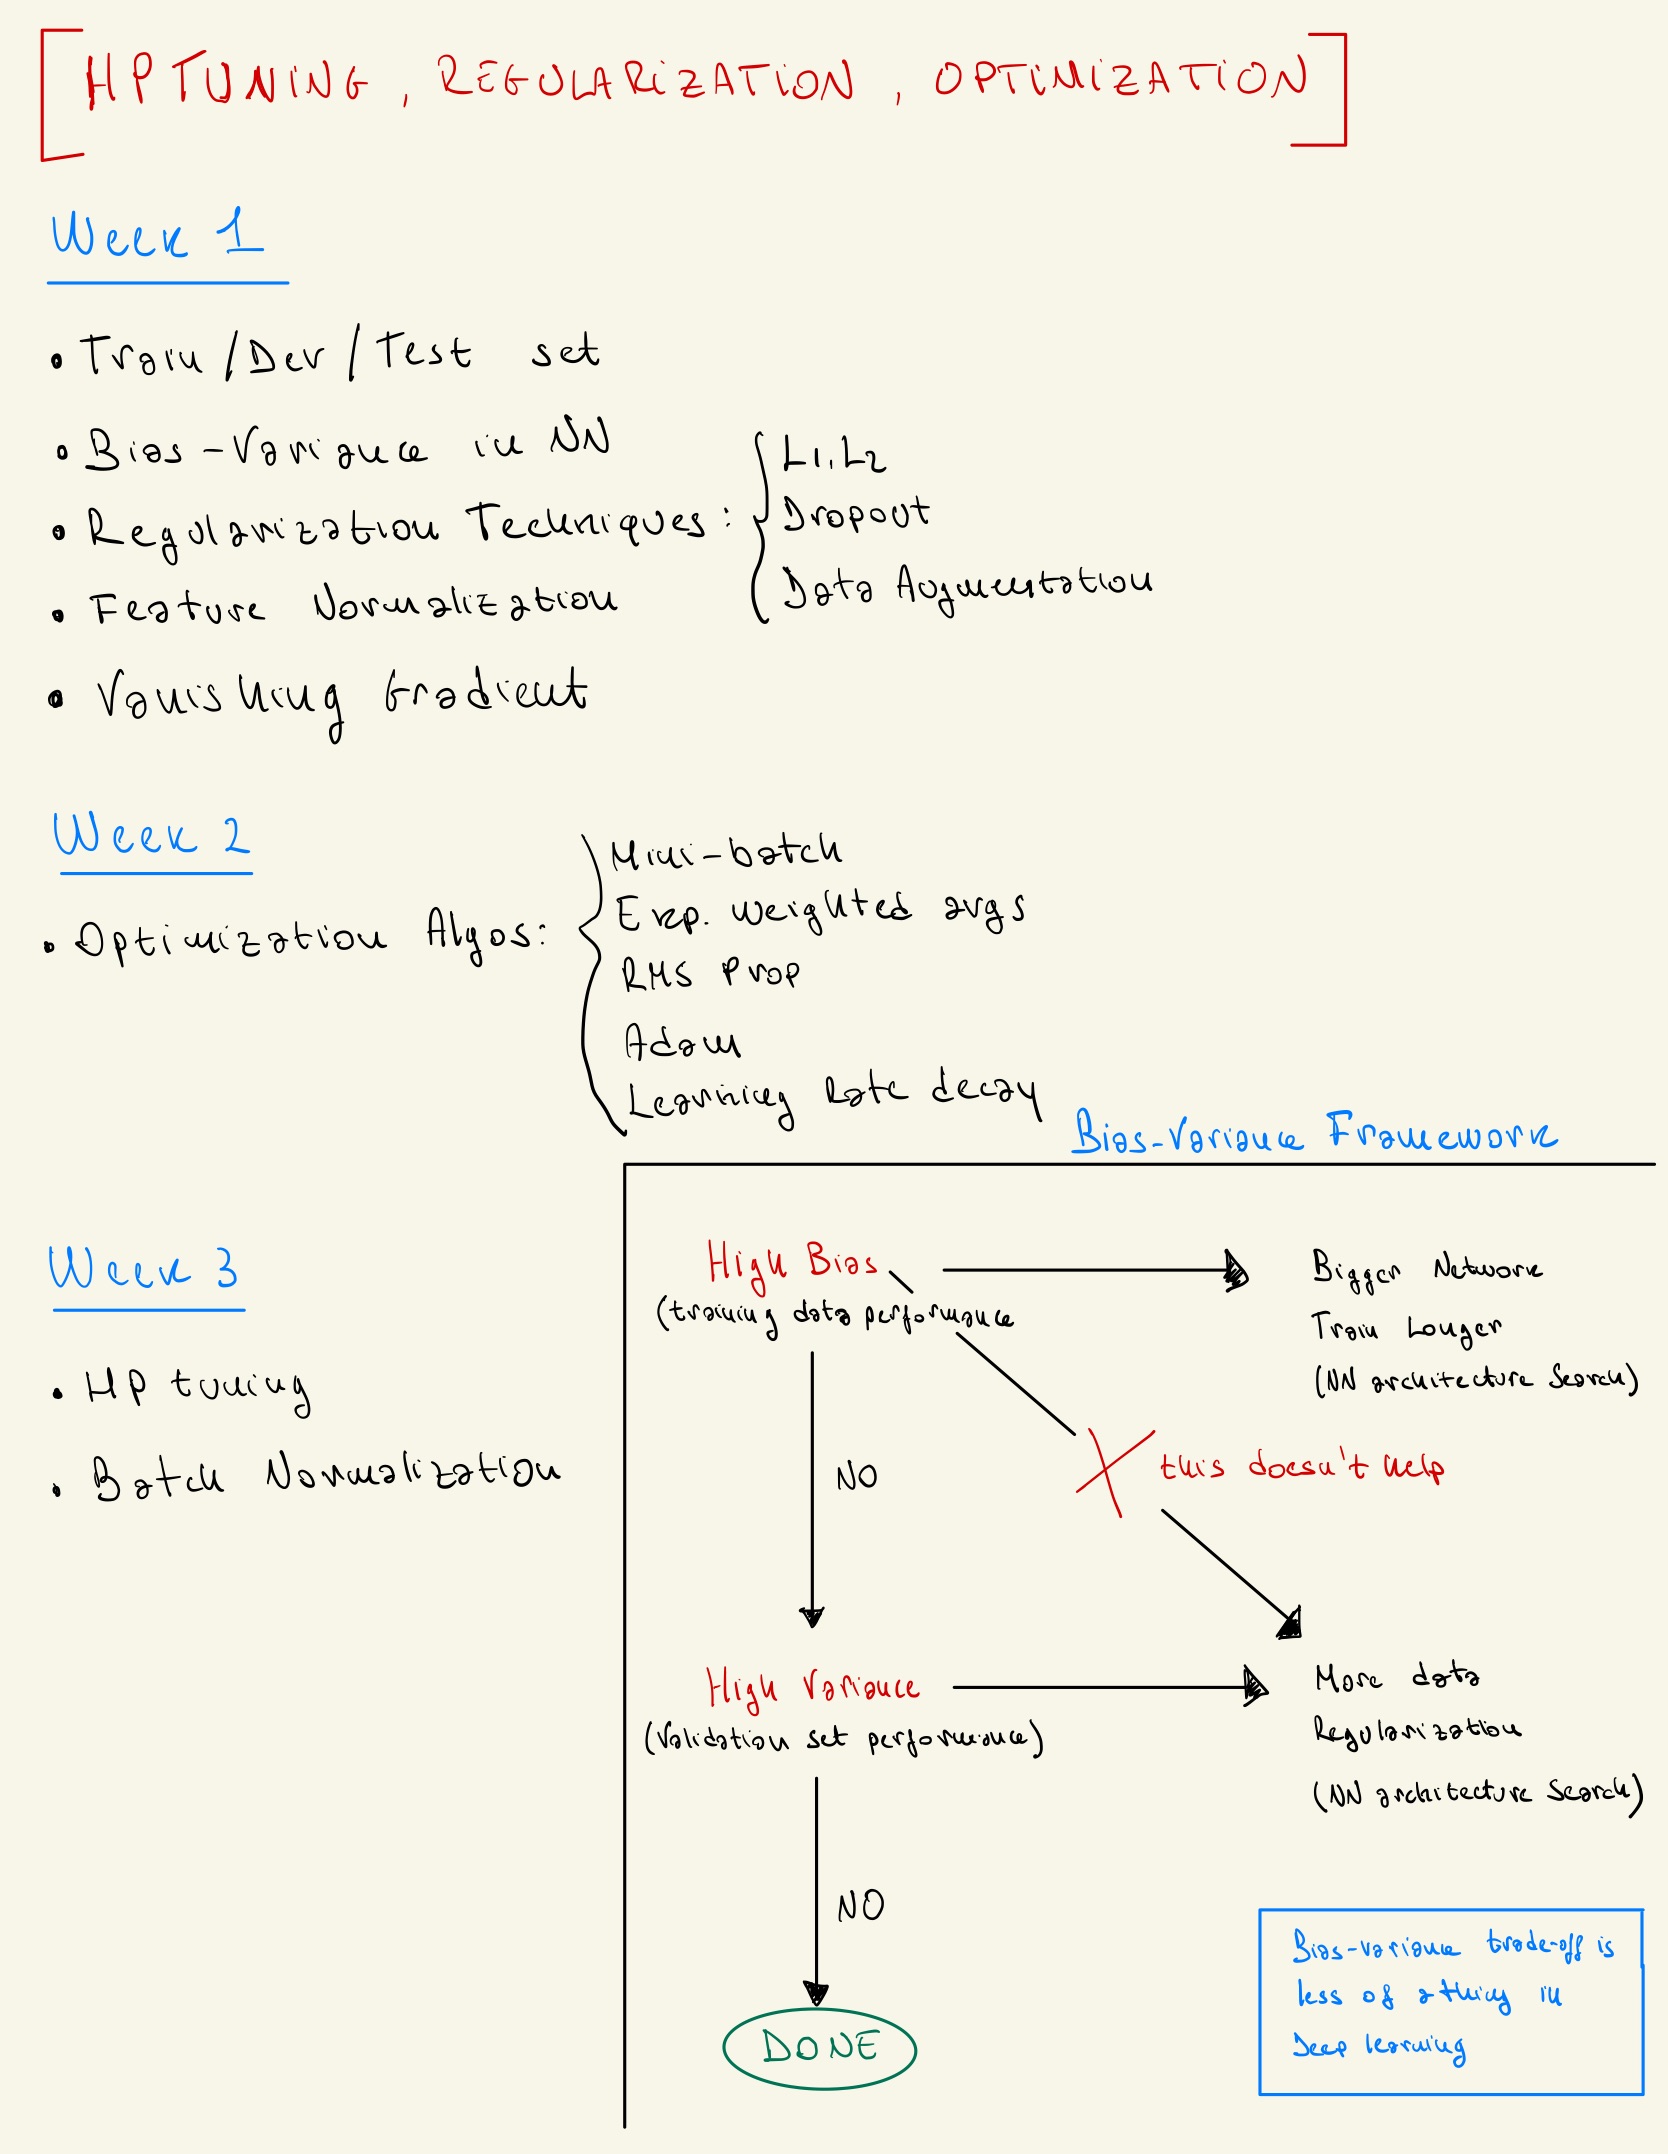 [HP TUNING, REGULARIZATION, OPTIMIZATION]
Week 1
• Train/Dev/Test set
• Bias-Variance in NN
• Regularization Techniques:
L1, L2
Dropout
Data Augmentation
• Feature Normalization
• Vanishing Gradient
Week 2
• Optimization Algos:
Mini-batch
Exp. weighted avgs
RMS Prop
Adam
Learning Rate decay
Week 3
• HP tuning
• Batch Normalization
Bias-Variance Framework
High Bias
(training data performance
Bigger Network
Train Longer
(NN architecture Search)
NO
this doesn't help
High Variance
(Validation set performance)
More data
Regularization
(NN architecture Search)
NO
DONE
Bias-variance trade-off is
less of a thing in
Deep learning